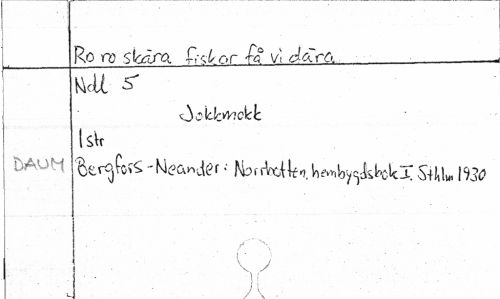 Ro ro skära fiskar få vi dära
Ndl 5
Jokkmokk
1 str
DAUM
Bergfors-Neander: Norrbotten, hembygdsbok I. Sthlm 1930